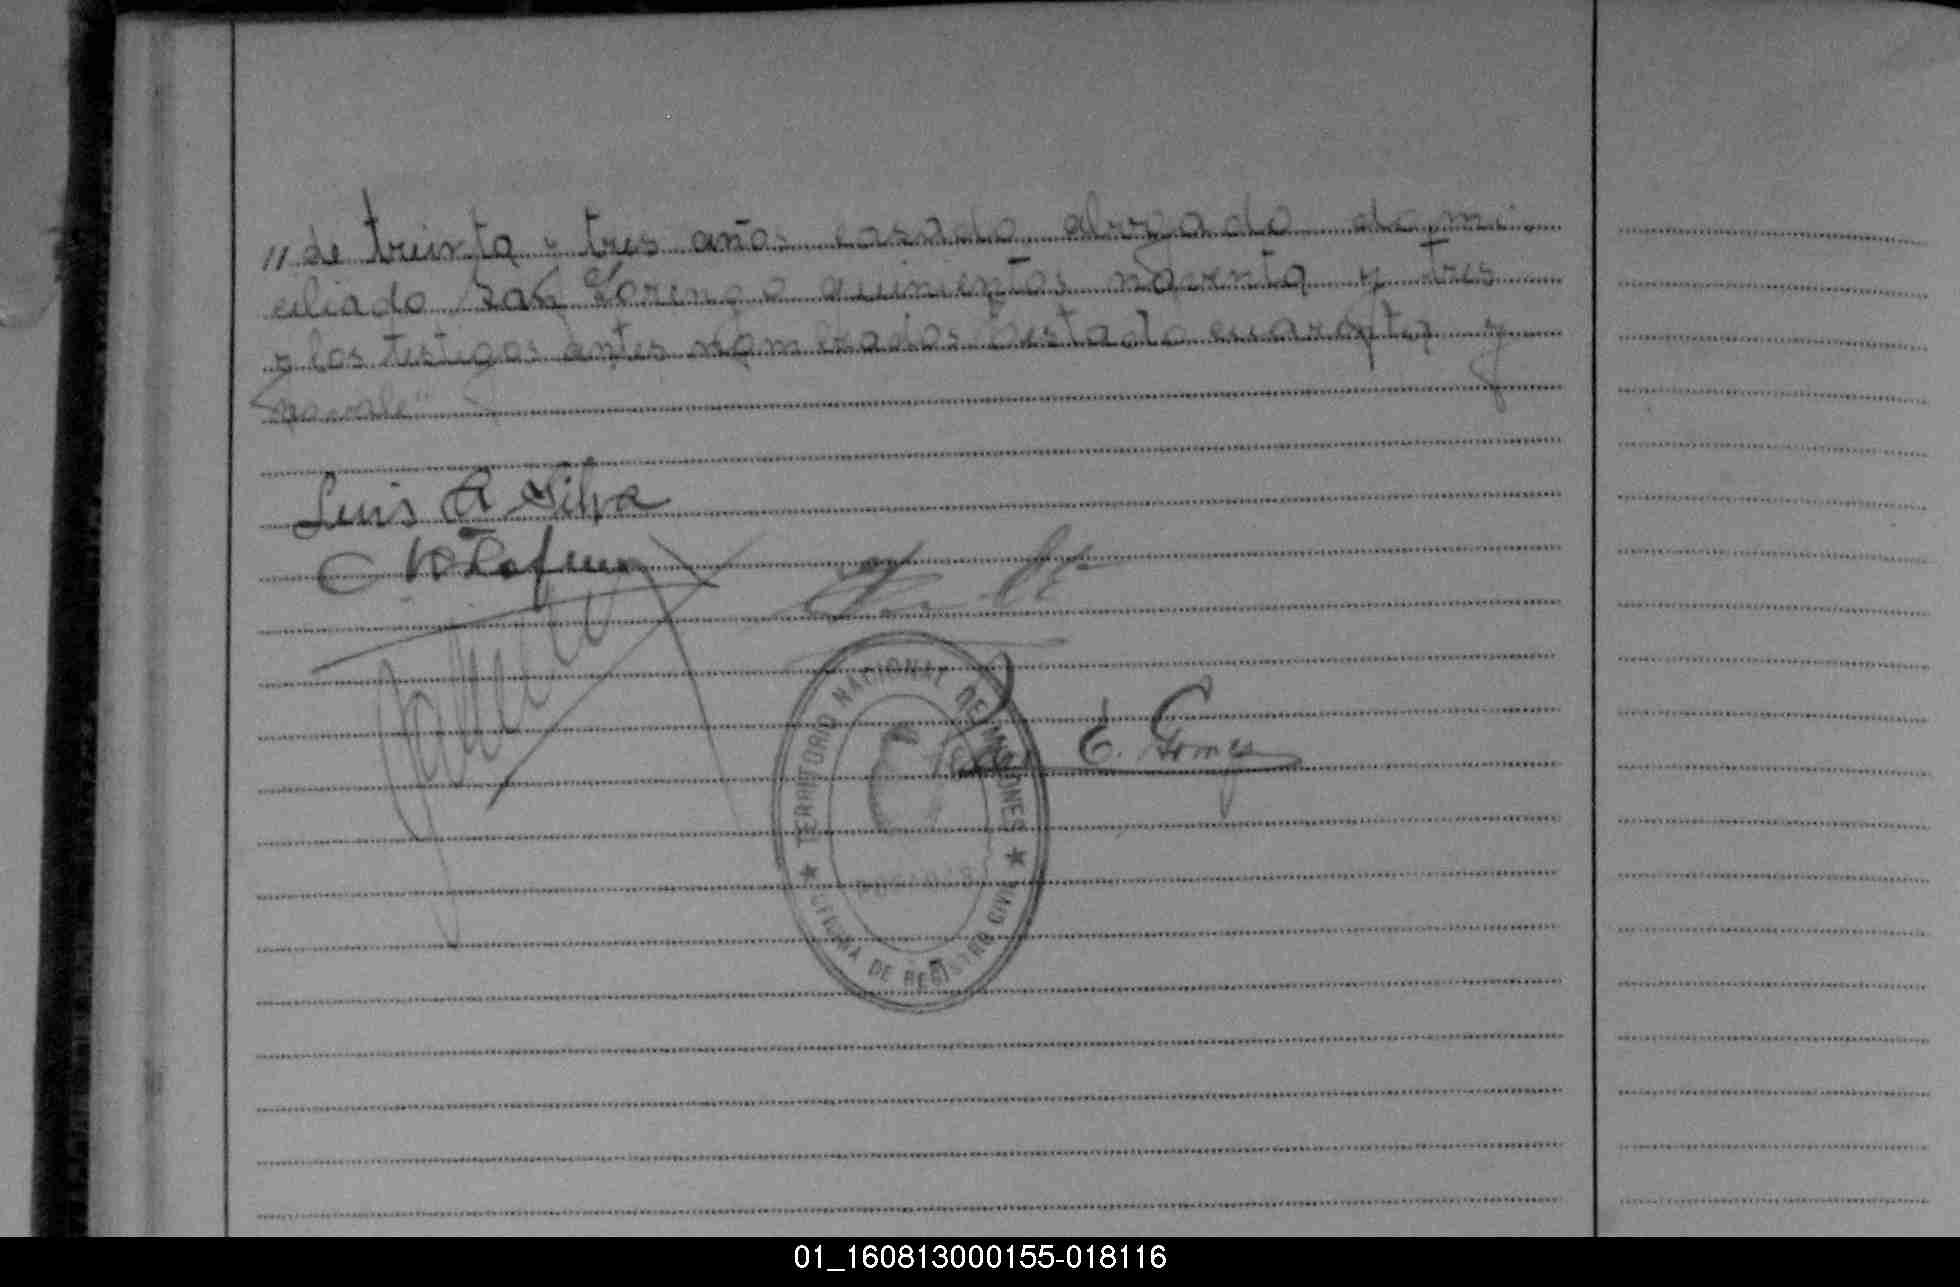 " de treinta y tres años casado abogado domi-
ciliado San Lorenzo quinientos noventa y tres
y los testigos antes nombrados testado cuarenta y
no vale"
Luis A Silva
E. Gomez
TERRITORIO NACIONAL DE MISIONES
POSADAS
OFICINA DE REGISTRO CIVIL
01_160813000155-018116